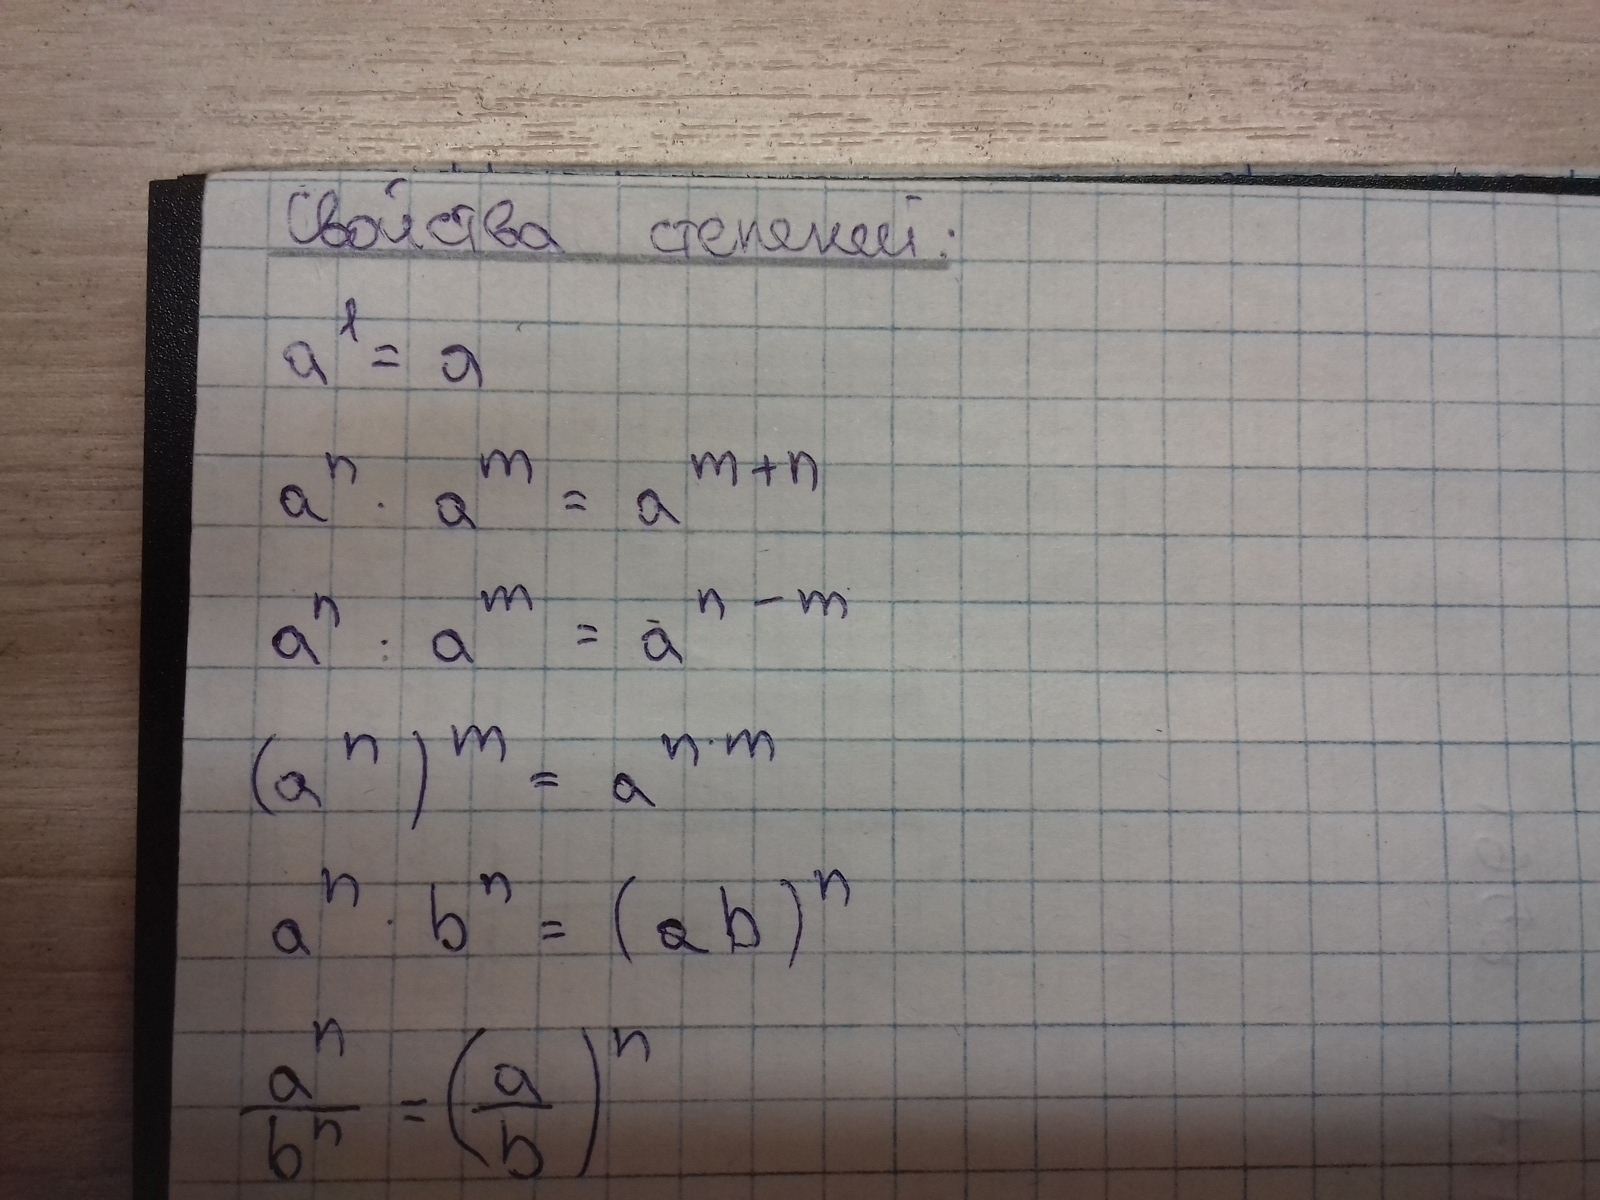 Свойства степеней:
a¹ = a
aⁿ · aᵐ = aᵐ⁺ⁿ
aⁿ : aᵐ = aⁿ⁻ᵐ
(aⁿ)ᵐ = aⁿ·ᵐ
aⁿ · bⁿ = (ab)ⁿ
aⁿ/bⁿ = (a/b)ⁿ